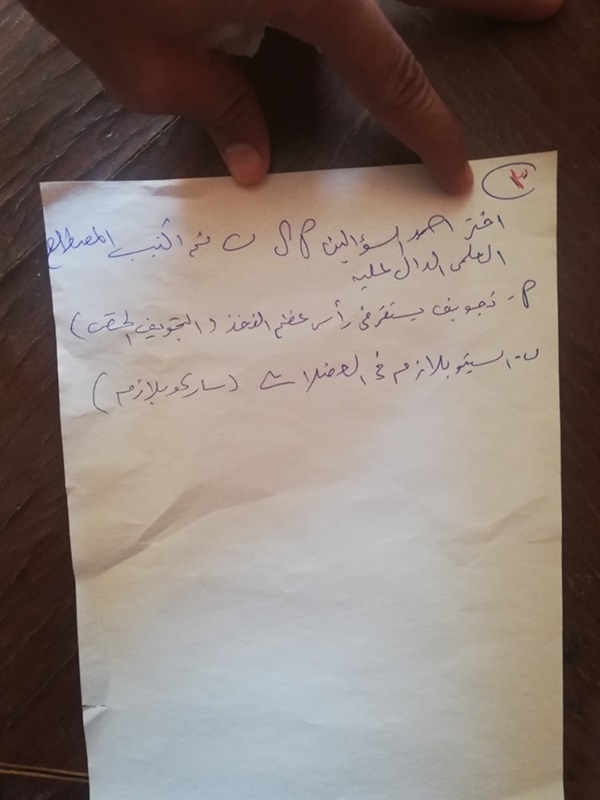 ٣
اختر احد السؤالين أ أو ب ثم اكتب المصطلح
العلمى الدال عليه
أ- تجويف يستقر فى رأس عظم الفخذ (التجويف الحقى)
ب- السيتوبلازم فى العضلات (ساركوبلازم)